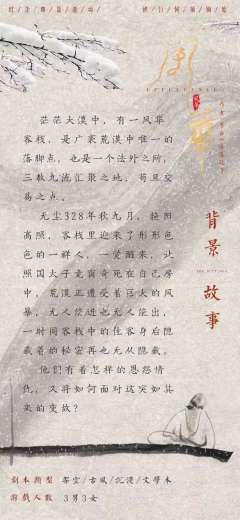 茫茫大漠中，有一风华
客栈，是广袤荒漠中唯一的
落脚点，也是一个法外之所，
三教九流汇聚之地，苟且交
易之点。
无尘328年秋九月，艳阳
高照，客栈里迎来了形形色
色的一群人，一觉醒来，让
照国太子竟离奇死在自己房
中，荒漠正遭受着巨大的风
暴，无人能进也无人能出，
一时间客栈中的住客身后隐
藏着的秘密再也无从隐藏。
他们有着怎样的恩怨情
仇，又将如何面对这突如其
来的变故？
背景故事
剧本类型 客空/古风/沉浸/文学本
游戏人数 3男3女